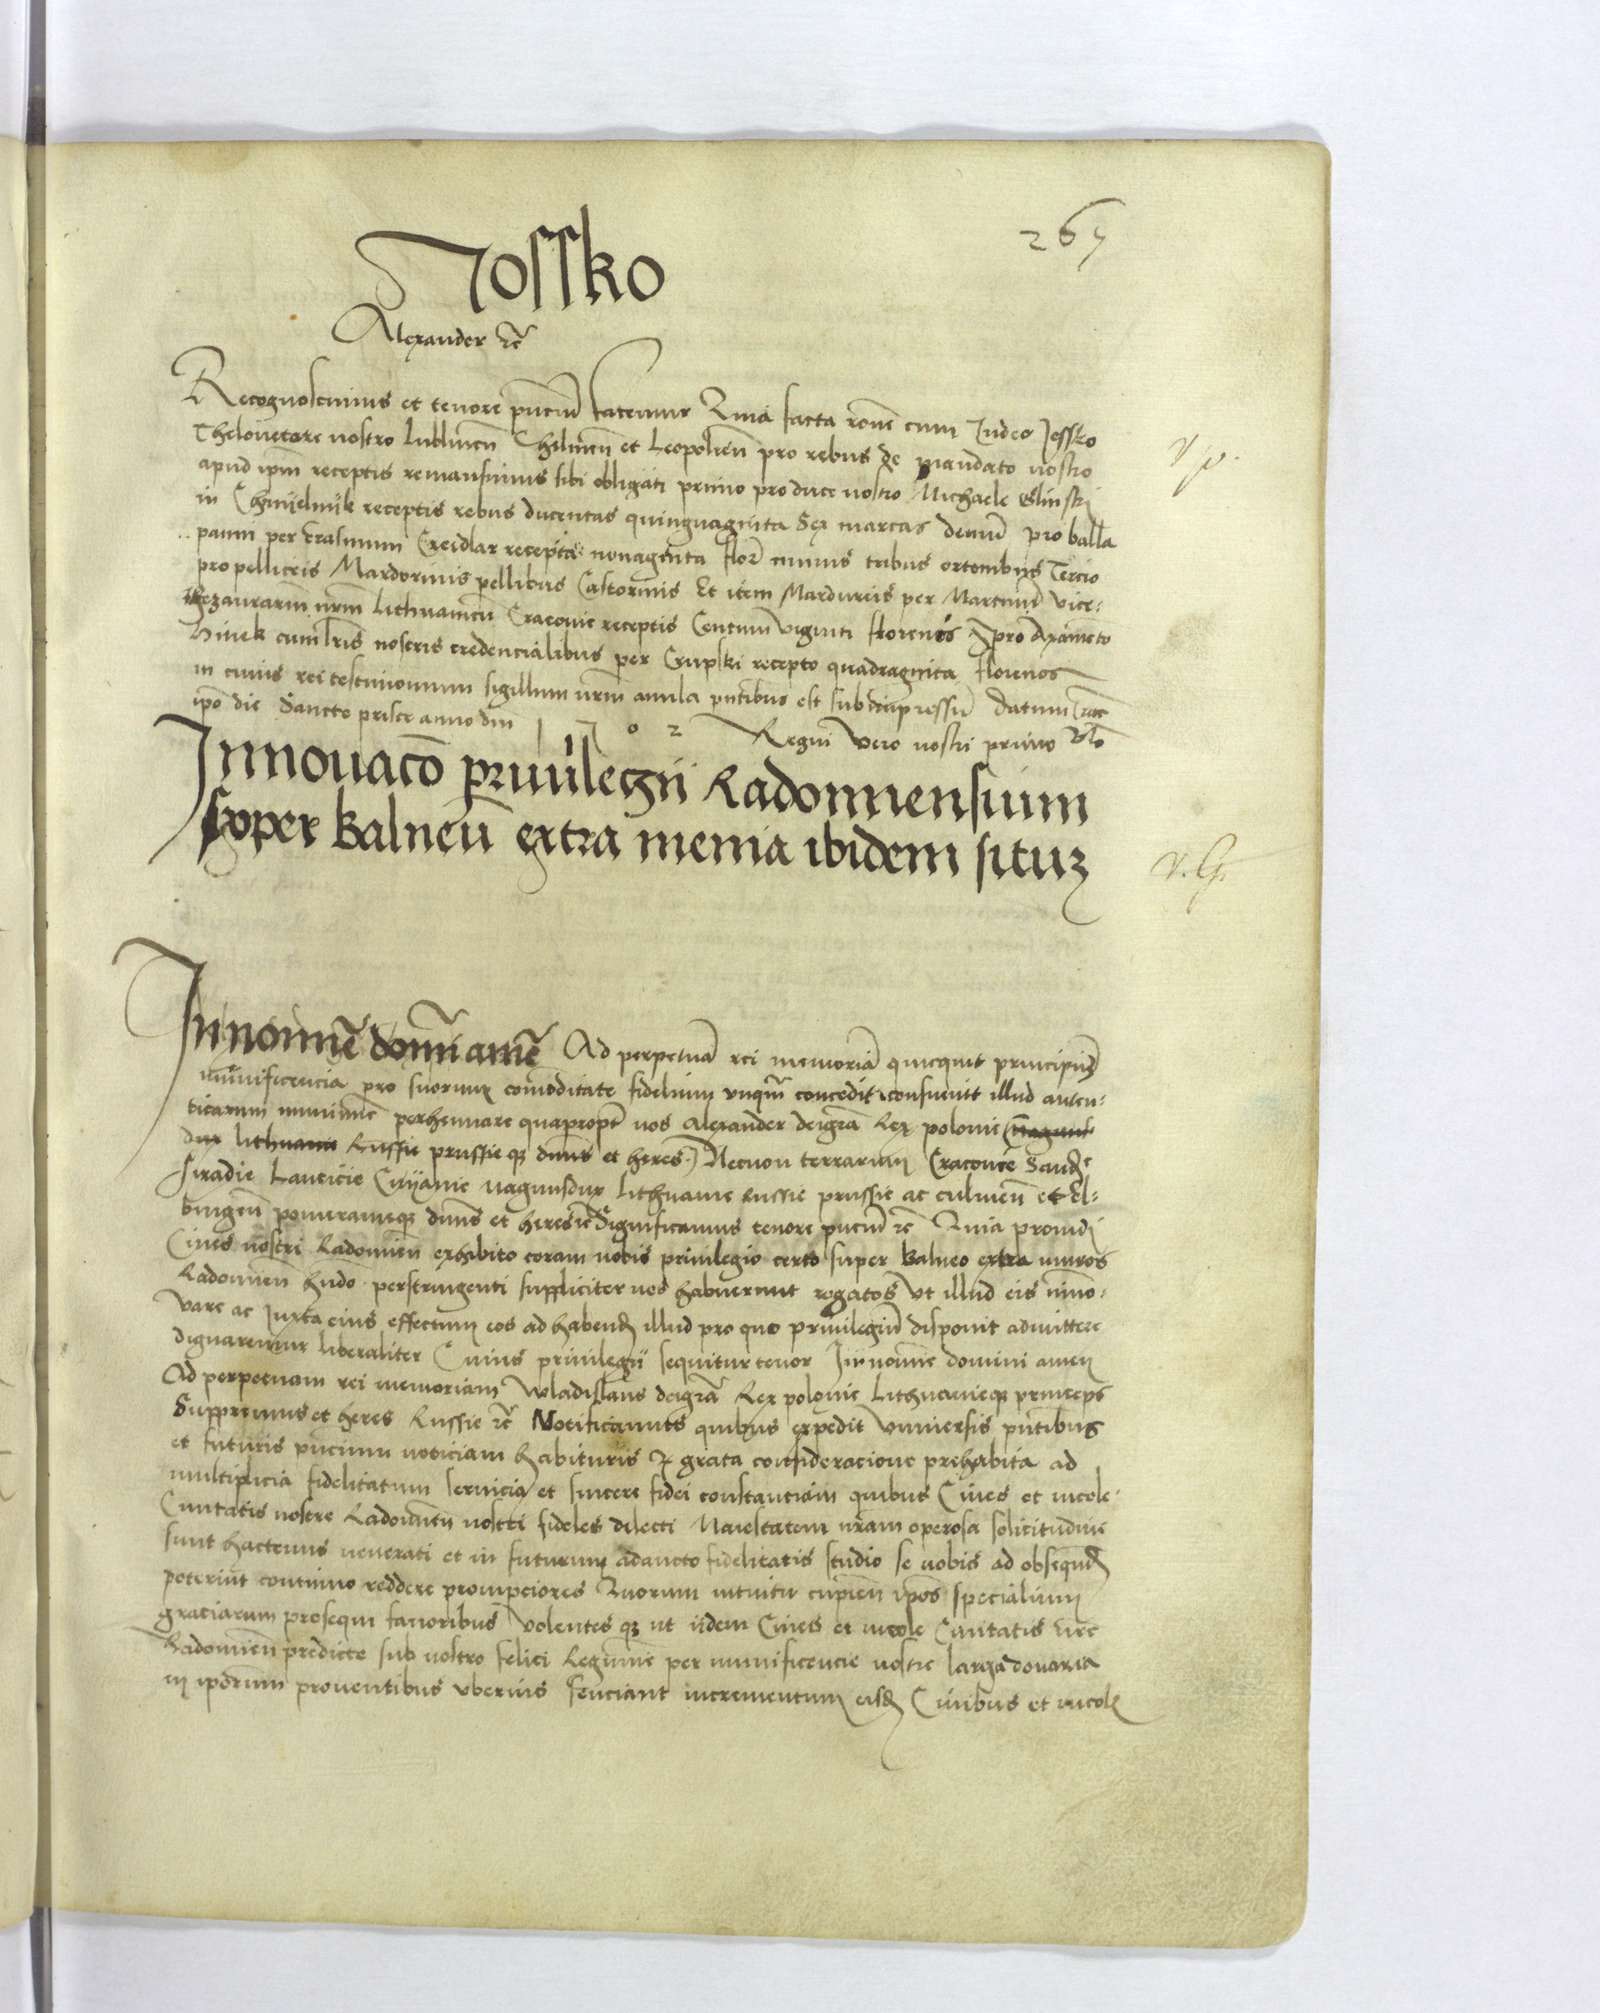 267
Jossko
Alexander etc
Recognoscimus et tenore pncium fatemur Quia facta rone cum Judeo Jossko
Theloneatore nostro lublinen Chelmen et Leopolien pro rebus de mandato nostro
apud ipm receptis remansimus sibi obligati primo pro duce nostro Michaele Glinski
in Chmyelnyk receptis rebus ducentas quinquaginta Sex marcas demum pro balla
panni per Erasmum Creidlar recepta nonaginta flor minus tribus ortonibus Tercio
pro pelliceis Mardorinis pellibus Castorinis Et item Mardureis per Martinum vice-
thezaurarium nrm Lithuanicum Cracovie receptis Centum viginti florenos Item pro Axamento
hinek cum lris nostris credencialibus per Crupski recepto quadraginta florenos
in cuius rei testimonium sigillum nrm anula pntibus est subimpressum datum Crac
ipo die Sancte prisce anno dni 1502 Regni vero nostri primo
v p.
Innouaco priuilegii Radomiensium
super balneum extra menia ibidem situm
v. G.
In nomine domini amen Ad perpetuam rei memoriam quicquit principum
munificencia pro suorum comoditate fidelium unquam concedit consueuit illud auten-
ticarum munimine perhennare quapropter nos Alexander dei gra Rex polonie magnus
dux lithuanie Russie prussie que dnus et heres Necnon terrarum Cracouie Sand
siradie Lancicie Cuyauie magnusdux Lithuanie russie prussie ac culmen et El-
bingen pomeranieque dnus et heres etc Significamus tenore pncium etc Quia prouidi
Ciues nostri Radomien exhibito coram nobis priuilegio certo super balneo extra muros
Radomien hndo perstringenti suppliciter nos habuerunt rogatos ut illud eis inno-
vare ac Juxta eius effectum eos ad habend illud pro quo priuilegium disponit admittere
dignaremur liberaliter Cuius priuilegii sequitur tenor In nomine domini amen
Ad perpetuam rei memoriam Wladislaus dei gra Rex polonie Lithuanieque princeps
Suppremus et heres Russie etc Notificamus quibus expedit vniuersis pntibus
et futuris pncium noticiam habituris Qz grata consideracione prehabita ad
multiplicia fidelitatum seruicia et sincere fidei constanciam quibus Ciues et incole
Ciuitatis nostre Radomien nostri fideles dilecti Maiestatem nram operosa solicitudine
sunt hactenus uenerati et in futurum adaucto fidelitatis studio se nobis ad obsequend
poterunt continuo reddere prompciores Quorum intuitu cupien ipos specialium
graciarum prosequi fauoribus Volentes qz ut iidem Ciues et incole Ciuitatis nre
Radomien predicte sub nostro felici Regimine per munificencie nostre larga donaria
in ipsorum prouentibus vberius senciant incrementum eisd Ciuibus et incolis